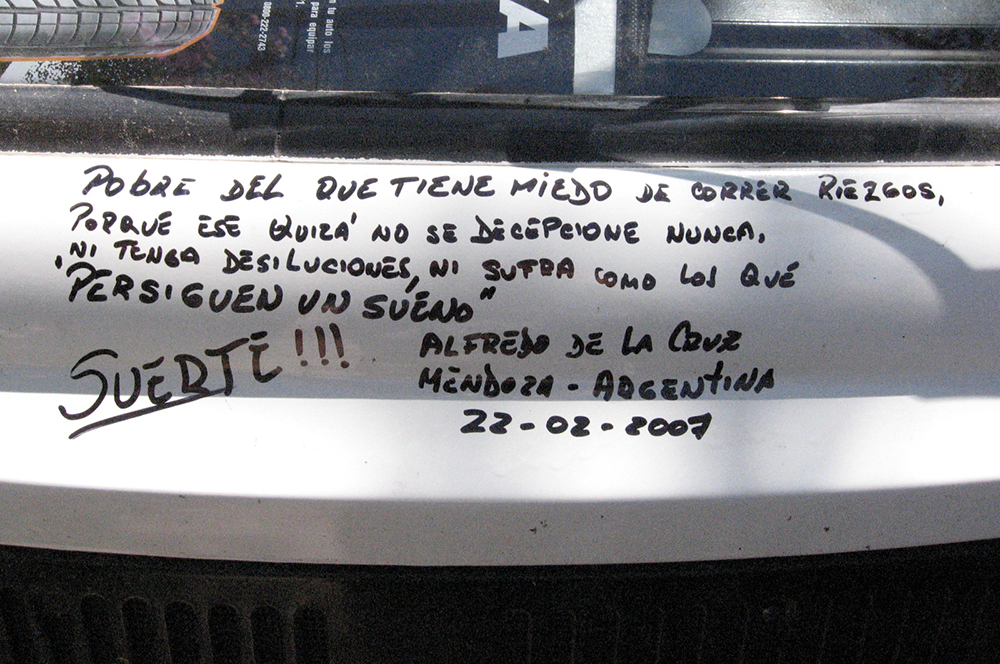 0800-222-2743
n tu auto los
para equipar
1.
A
POBRE DEL QUE TIENE MIEDO DE CORRER RIEZGOS,
PORQUE ESE QUIZÁ NO SE DECEPCIONE NUNCA,
NI TENGA DESILUCIONES, NI SUFRA COMO LOS QUÉ
"PERSIGUEN UN SUEÑO"
SUERTE!!!
ALFREDO DE LA CRUZ
MENDOZA - ARGENTINA
22-02-2007